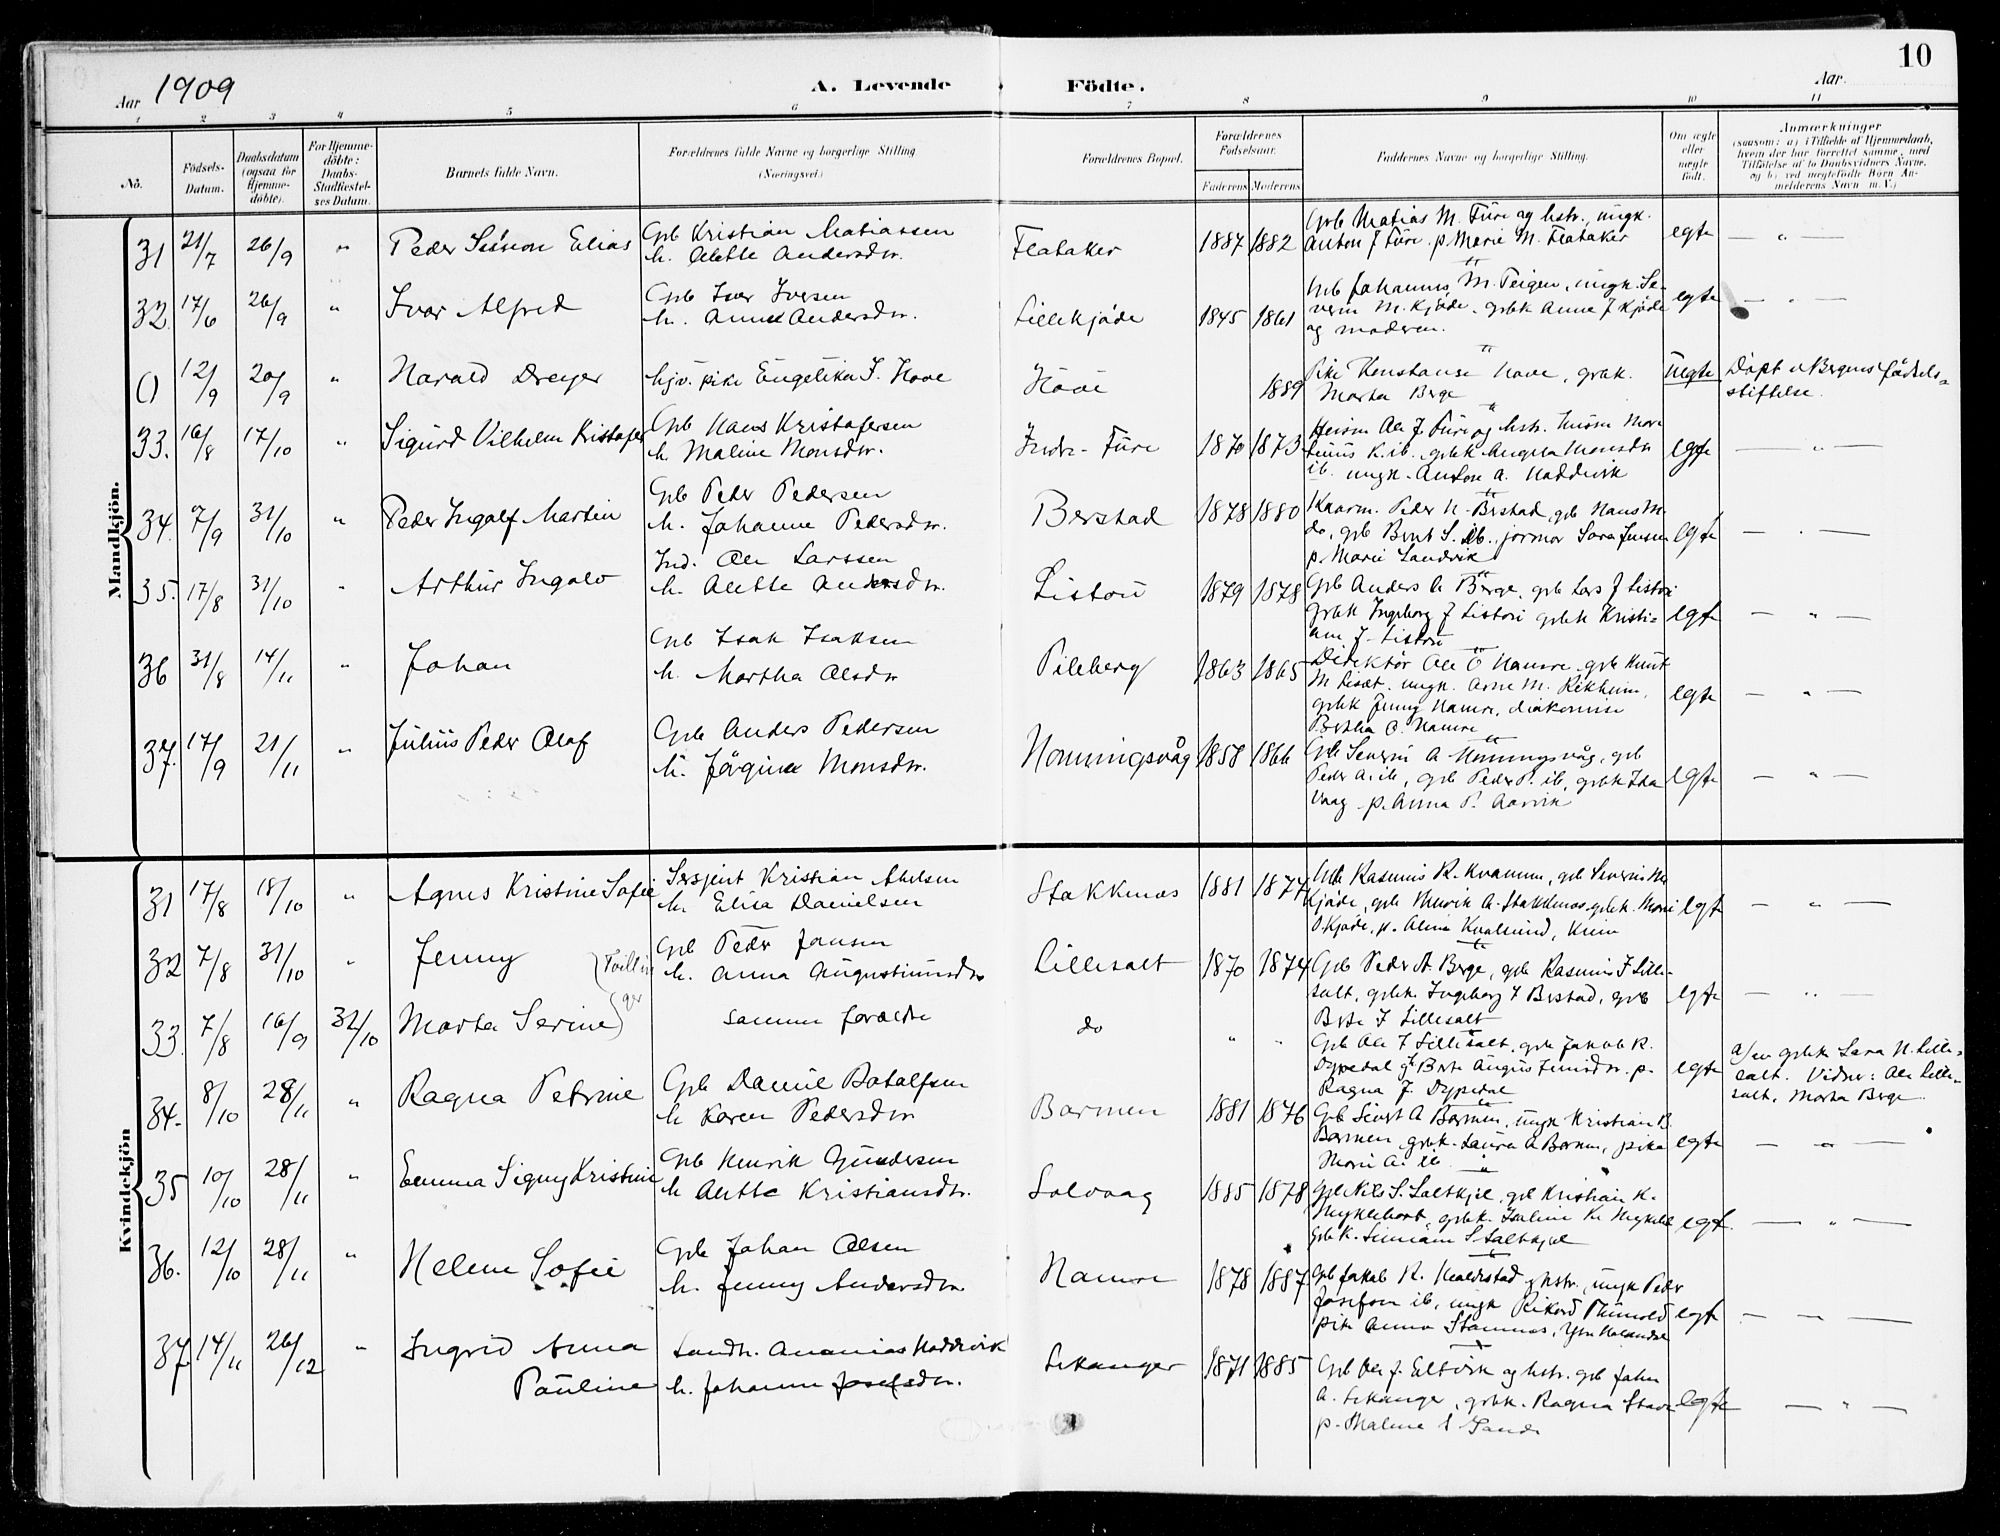 10
Aar 1909
A. Levende Födte.
Aar.
1 2 3 4 5 6 7 8 9 10 11
No.
Födsels-
Datum.
Daabsdatum
(ogsaa for
Hjemme-
döbte).
For Hjemme-
döbte:
Daabs-
Stadfæstel-
ses Datum.
Barnets fulde Navn.
Forældrenes fulde Navne og borgerlige Stilling
(Næringsvei.)
Forældrenes Bopæl.
Forældrenes
Födselsaar.
Faderens Moderens
Faddernes Navne og borgerlige Stilling.
Om ægte
eller
uægte
födt.
Anmærkninger
(saasom: a) i Tilfælde af Hjemmedaab,
hvem der har forrettet samme, med
Tilföielse af to Daabsvidners Navne,
og b) ved uægtefödte Börn An-
melderens Navn m. V.)
Mandkjön.
31 21/7 26/9 " Peder Simon Elias
Grb Kristian Matiassen
h. Alette Andersdtr.
Flataker 1887 1882
Grb Matias M. Füre og hstr., ungk.
Anton J Füre. p. Marie M. Flataker
egte — " —
32. 17/6 26/9 " Ivar Alfred
Grb Iver Iversen
h. Anne Andersdtr.
Lillekjøde 1845 1861
Grb Johannes M. Teigen, ungk. Se-
verin M. Kjøde, grbk Anne J Kjøde
og moderen.
egte — " —
0 12/9 20/9 " Harald Dreyer
hjv. pike Engelika J. Hove
Hove 1889
Pike Konstanse Hove, grbk.
Marta Berge
Uegte
Døpt i Bergens fødsels-
stiftelse.
33. 16/8 17/10 " Sigurd Vilhelm Kristofer
Grb Hans Kristofersen
h. Maline Monsdtr.
Indr. Füre 1870 1873
ib. ungk. Anton A. Haddevik
egte — " —
34. 7/9 31/10 " Peder Ingolf Martin
Grb Peder Pedersen
h. Johanne Pedersdtr.
Berstad 1878 1880
Kaarm. Peder H. Berstad, grb Hans M.
do, grb Bent S. ib., jormor Sara Jensen
p. Marie Sandvik
egte — " —
35. 17/8 31/10 " Arthur Ingolv
Ind. Ole Larssen
h. Alette Andersdtr.
Listou 1879 1878
Grb Anders A Berge, grb Lars J Listou
grbk Ingeborg J Listou grbk Kristi-
ane J. Listou
egte — " —
36 31/8 14/11 " Johan
Grb Isak Isaksen
h. Martha Olsdtr
Pileberg 1863 1865
Direktør Ole O Hamre, grb Knut
M Lisæt. ungk. Arne M. Rikheim,
grbk Jenny Hamre, diakonisse
Bertha O. Hamre
egte — " —
37. 17/9 21/11 " Julius Peder Olaf
Grb Anders Pedersen
h. Jørgine Monsdtr.
Honningsvåg 1858 1866
Grb Severin A Honningsvåg, grb
Peder A. ib, grb Peder P. ib, grbk Ida
Vaag p. Anna P. Aarvik
egte — " —
Kvindekjön
31 17/8 18/10 " Agnes Kristine Sofie
Sersjent Kristian Abelsen
h. Elisa Danielsen
Stakkenes 1881 1874
Grb Rasmus R. Kvamme, grb Severin M
Kjøde, grb Henrik A. Stakkenes grbk. Marie
O Kjøde, p. Alma Kvalsund,
egte — " —
32 7/8 31/10 " Jenny
(Tvillin
Grb Peder Jansen
h. Anna Augustinusdtr
Lillesalt 1870 1874
Grb Peder A Berge, grb Rasmus J Lille-
salt, grbk. Ingeborg J Berstad, grb
Berte J Lillesalt
egte — " —
33. 7/8 16/9 31/10 Marta Serine) ger
samme foreldre
do " "
Grb Ole J Lillesalt, grb Jakob R.
Dypedal Berte Augustinusdtr. p.
Ragna J. Dypedal
egte
a/ av grbk Sara N. Lille-
salt. Vidner: Ole Lille-
salt, Marta Berge
34. 8/10 28/11 " Ragna Petrine
Grb Daniel Botolfsen
h Karen Pedersdtr
Barmen 1881 1876
Grb Sivert A Barmen, ungk Kristian B.
Barmen, grbk. Laura A Barmen, pike
Marie A. ib.
egte — " —
35 10/10 28/11 " Emma Signy Kristine
Grb Henrik Gundersen
h Alette Kristiansdtr.
Solvaag 1885 1878
Grb Nils S. Saltkjel, grb Kristian K.
Myklebost, grbk. Haline Kr Mykleb
grbk. S Saltkjel
egte. — " —
36. 12/10 28/11 " Helene Sofie
Grb Johan Olsen
h. Jenny Andersdtr.
Hamre 1878 1887
Grb Jakob R. Heldestad hstr., ungk Peder
Josefsen ib, ungk Rikard
pike Anna Stamnes,
egte — " —
37. 14/11 26/12 " Ingrid Anna
Pauline
Landh. Ananias Haddevik
h. Johanne Josefsdtr.
Lekanger 1871 1885
Grb Ole J. Eltvik og hstr. grb Johan
A. Lekanger, grbk. Ragna Stave
p. Maline S Sande
egte — " —